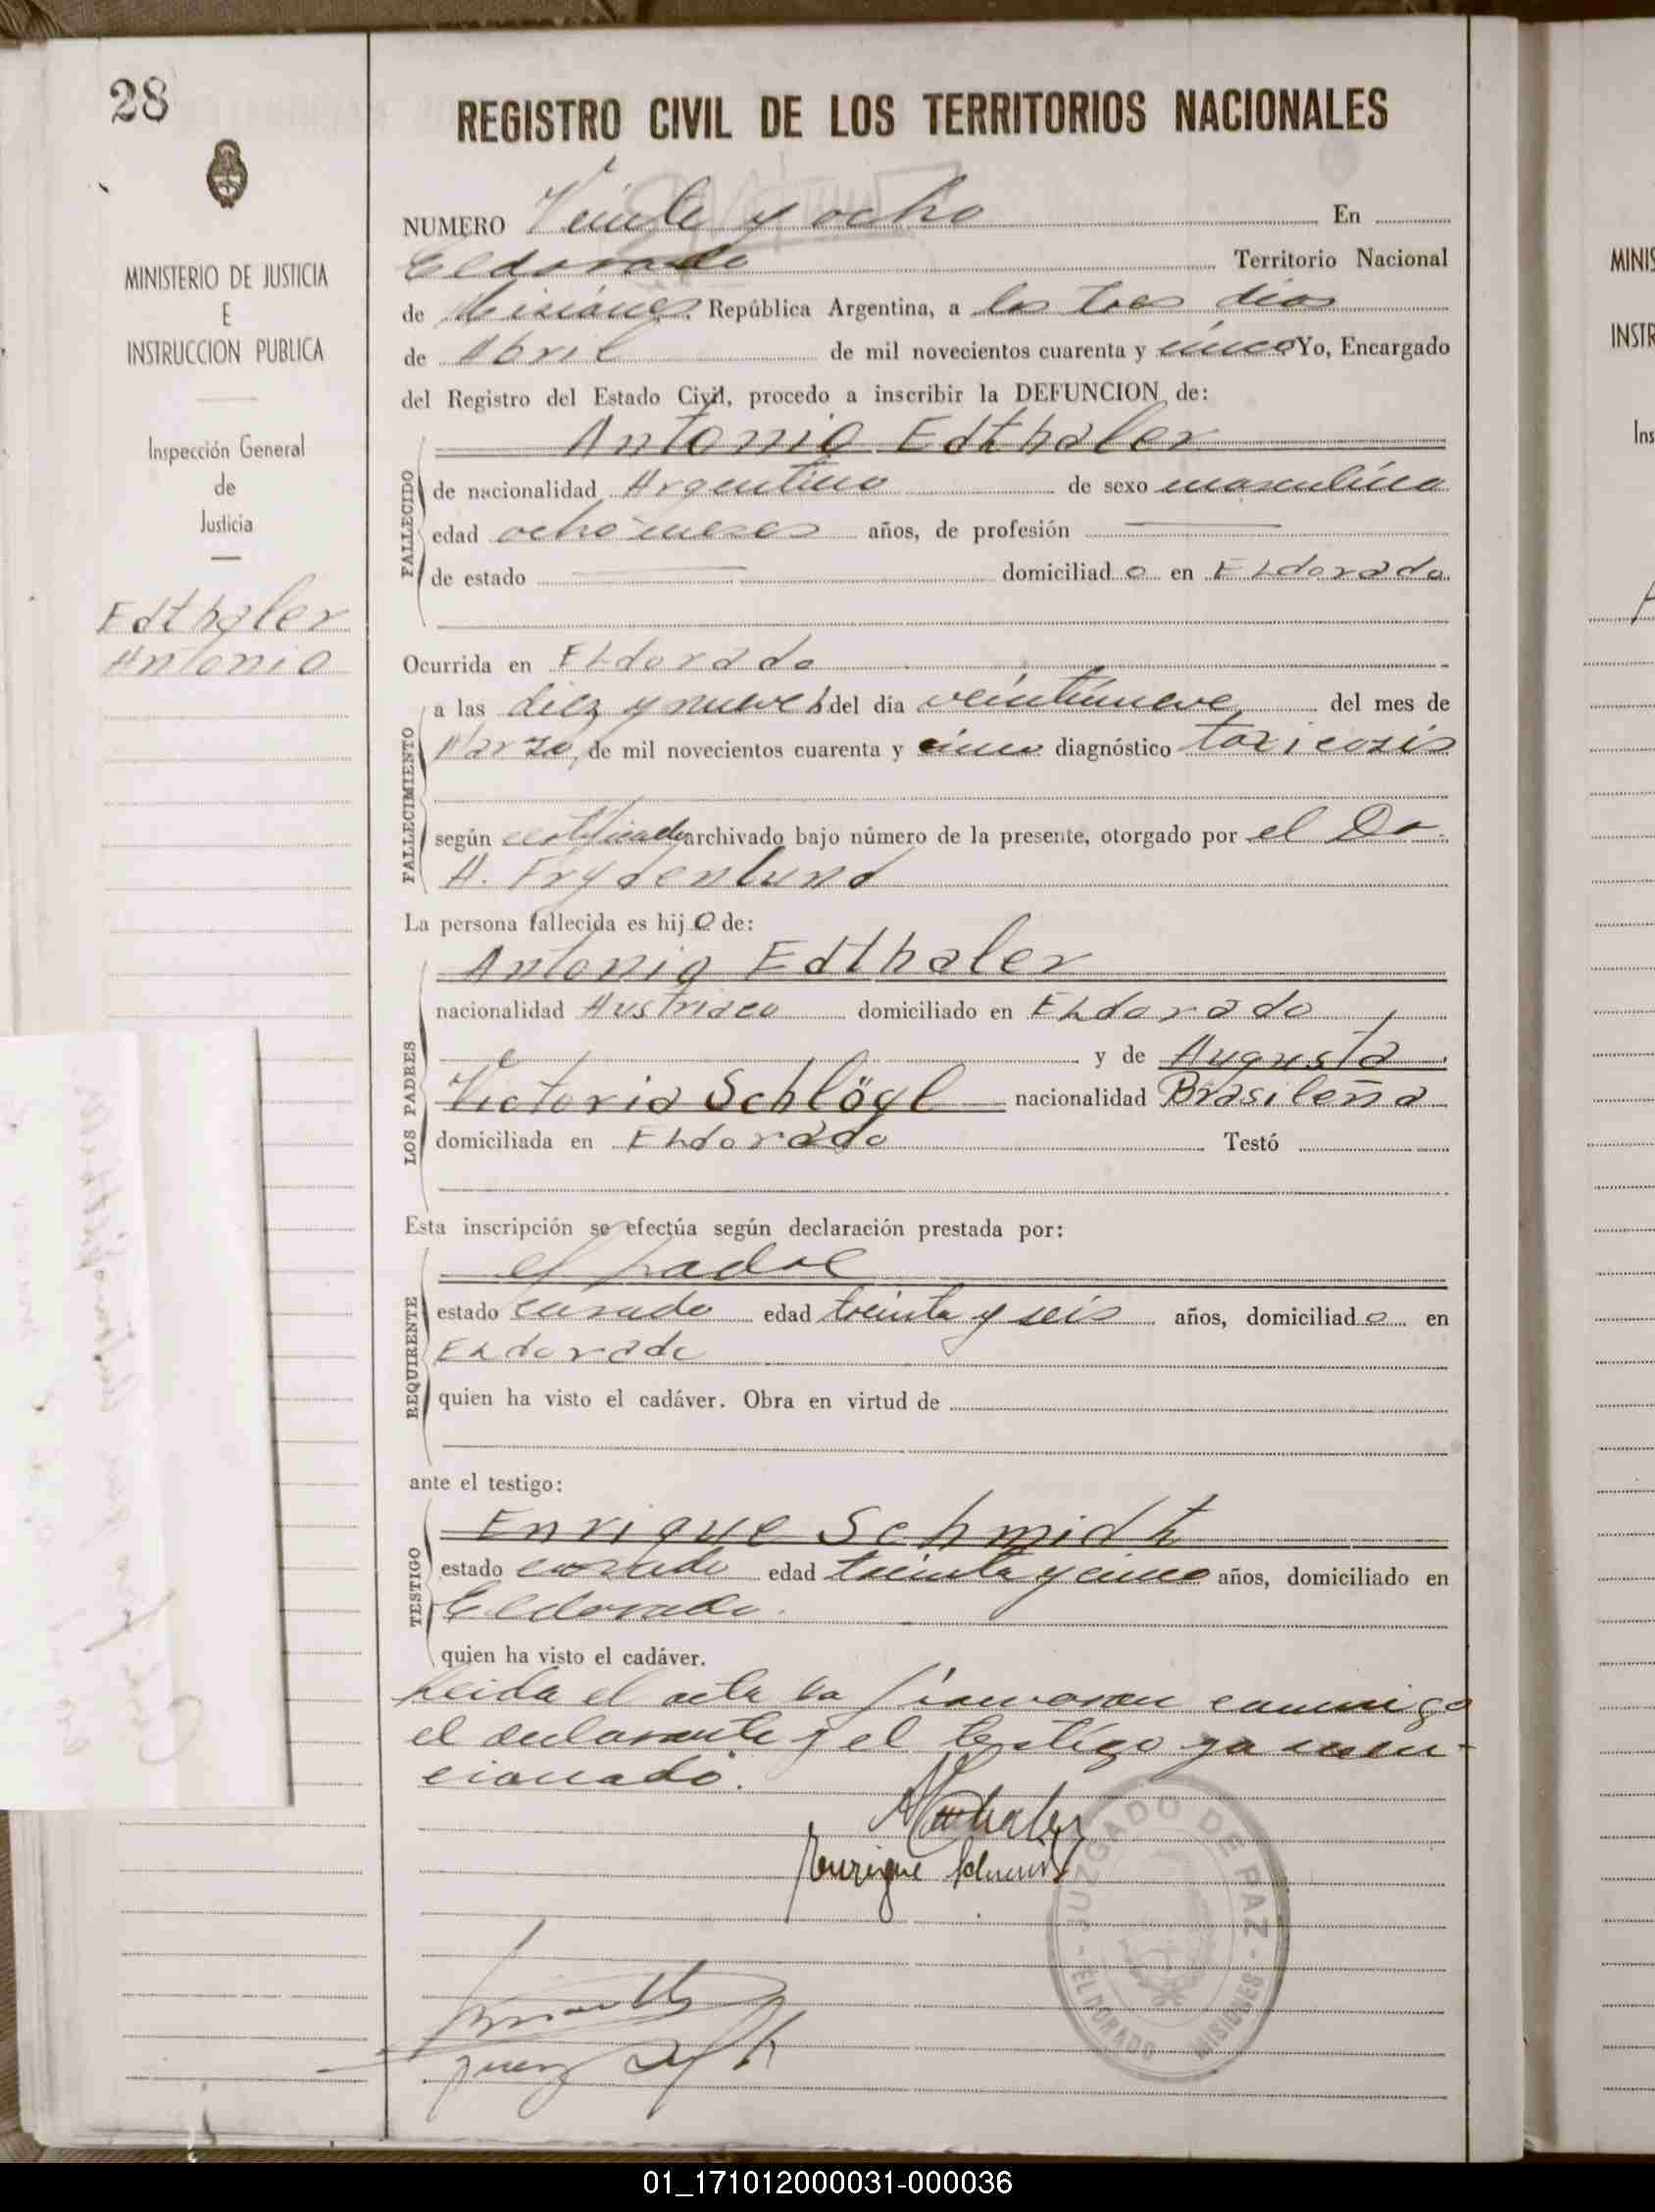 28
MINISTERIO DE JUSTICIA
E
INSTRUCCION PUBLICA
Inspección General
de
Justicia
Edthaler
Antonio
REGISTRO CIVIL DE LOS TERRITORIOS NACIONALES
NUMERO Veinte y ocho En
Eldorado Territorio Nacional
de Misiones, República Argentina, a los tres dias
de Abril de mil novecientos cuarenta y cinco Yo, Encargado
del Registro del Estado Civil, procedo a inscribir la DEFUNCION de:
Antonio Edthaler
FALLECIDO
de nacionalidad Argentino de sexo masculino
edad ocho meses años, de profesión
de estado domiciliado en ELdorado
Ocurrida en ELdorado
FALLECIMIENTO
a las diez y nueve h del día veintinueve del mes de
Marzo, de mil novecientos cuarenta y cinco diagnóstico toxicosis
según certificado archivado bajo número de la presente, otorgado por el Dr.
A. Frydenlund
La persona fallecida es hijo de:
LOS PADRES
Antonio Edthaler
nacionalidad Austriaco domiciliado en ELdorado
y de Augusta
Victoria Schlögl nacionalidad Brasileña
domiciliada en ELdorado Testó
Esta inscripción se efectúa según declaración prestada por:
REQUIRENTE
el padre
estado casado edad treinta y seis años, domiciliado en
ELdorado
quien ha visto el cadáver. Obra en virtud de
ante el testigo:
TESTIGO
Enrique Schmidt
estado casado edad treinta y cinco años, domiciliado en
Eldorado.
quien ha visto el cadáver.
Leida el acta la firmaron conmigo
el declarante y el testigo ya men-
cionado.
Enrique Schmidt
JUZGADO DE PAZ
ELDORADO - MISIONES
Juez de Paz
MINIS
INSTR
Ins
01_171012000031-000036